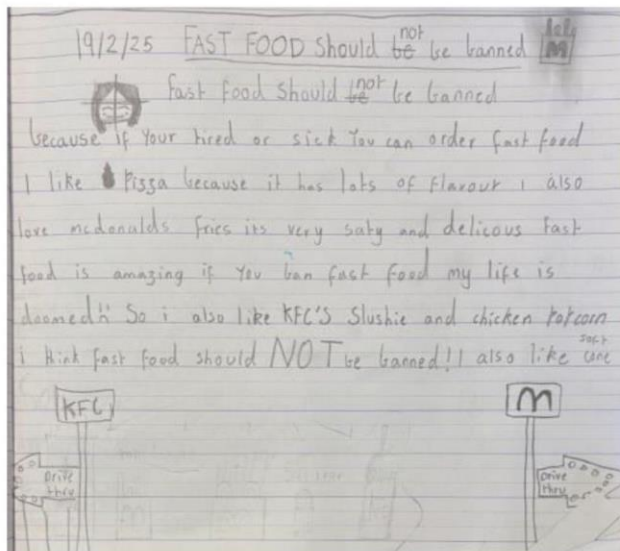 19/2/25 FAST FOOD Should not be banned
M
fast food should not be banned
because if Your tired or sick You can order fast food
I like Pizza because it has lots of flavour i also
love mcdonalds fries its very salty and delicous fast
food is amazing if You ban fast food my life is
doomed!! So i also like KFC'S Slushie and chicken Popcorn
i think fast food should NOT be banned! I also like soft cone
KFC
M
Drive thru
Drive thru